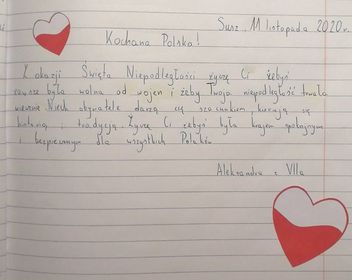 Susz, 11 listopada 2020r.
Kochana Polsko!
Z okazji Święta Niepodległości życzę Ci żebyś
zawsze była wolna od wojen i żeby Twoja niepodległość trwała
wiecznie. Niech obywatele darzą cię szacunkiem kierują się
historią i tradycją. Życzę Ci żebyś była krajem spokojnym
i bezpiecznym dla wszystkich Polaków.
Aleksandra z VIIa